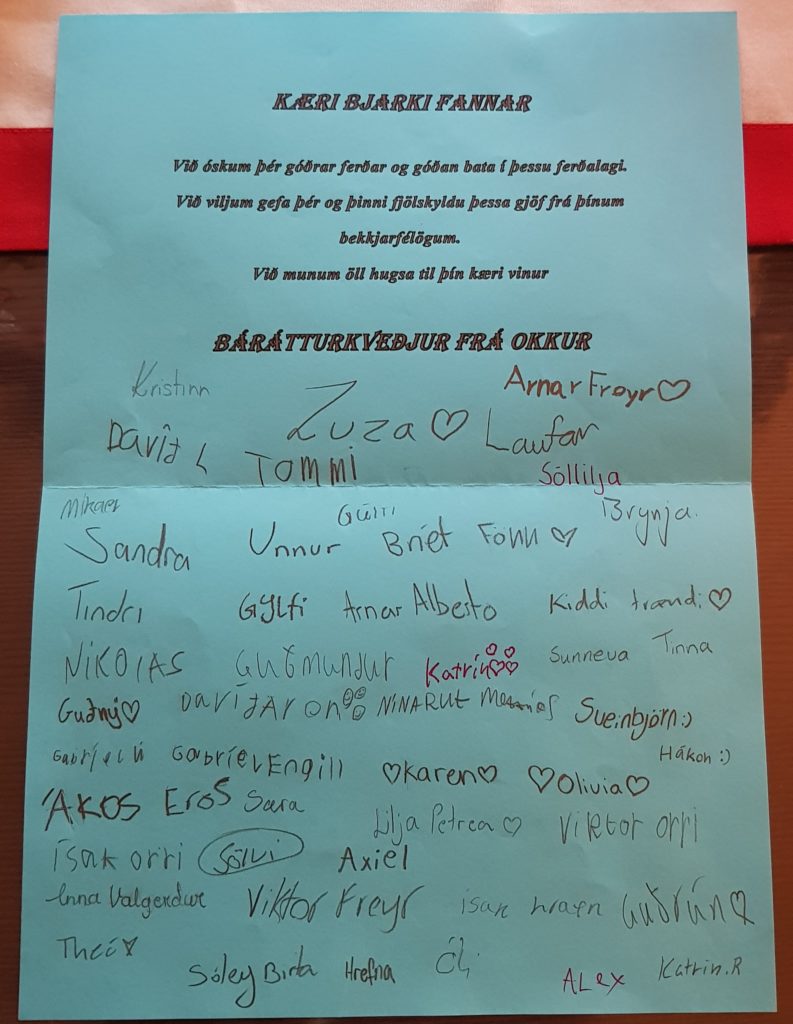 KÆRI BJARKI FANNAR
Við óskum þér góðrar ferðar og góðan bata í þessu ferðalagi.
Við viljum gefa þér og þinni fjölskyldu þessa gjöf frá þínum
bekkjarfélögum.
Við munum öll hugsa til þín kæri vinur
BÁRÁTTURKVEÐJUR FRÁ OKKUR
Kristinn
Arnar Freyr♡
Zuza♡
Davíð L
TOMMI
Laufar
Sóllilja
Mikael
Brynja.
Sandra Unnur Bríet Fönn ♡
Tindri Gylfi Arnar Alberto Kiddi trændi♡
NIKOlAS Guðmundur Katrín♡♡♡ Sunneva Tinna
Guðný♡ DavíðAron NINARUt Sveinbjörn:)
Gabríel Engill ♡Karen♡ ♡Olivia♡ Hákon :)
ÁKOS EROS Sara Lilja Petrea♡ Viktor orri
ísak orri Sölvi Axiel
Anna Valgerður Viktor Freyr ísak hrafn Guðrún♡
Theó♡
Sóley Birta Hrefna Óli ALEX Katrin.R